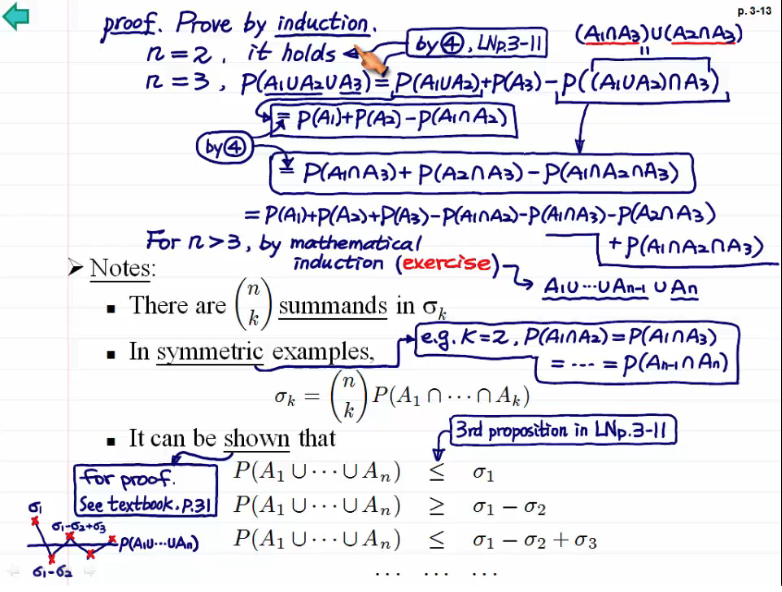 p. 3-13
proof. Prove by induction.
n=2, it holds
by ④, LNp.3-11
(A₁∩A₃)∪(A₂∩A₃)
=
n=3, P(A₁∪A₂∪A₃) = P(A₁∪A₂)+P(A₃)-P((A₁∪A₂)∩A₃)
= P(A₁)+P(A₂)-P(A₁∩A₂)
by ④
= P(A₁∩A₃)+P(A₂∩A₃)-P(A₁∩A₂∩A₃)
= P(A₁)+P(A₂)+P(A₃)-P(A₁∩A₂)-P(A₁∩A₃)-P(A₂∩A₃)
+P(A₁∩A₂∩A₃)
For n>3, by mathematical
induction (exercise)
A₁∪⋯∪Aₙ₋₁ ∪ Aₙ
➢ Notes:
▪ There are (n k) summands in σₖ
▪ In symmetric examples,
e.g. K=2, P(A₁∩A₂)=P(A₁∩A₃)
= ⋯ = P(Aₙ₋₁∩Aₙ)
σₖ = (n k) P(A₁ ∩ ⋯ ∩ Aₖ)
▪ It can be shown that
3rd proposition in LNp.3-11
for proof.
See textbook. P.31
P(A₁ ∪ ⋯ ∪ Aₙ) ≤ σ₁
P(A₁ ∪ ⋯ ∪ Aₙ) ≥ σ₁ − σ₂
P(A₁ ∪ ⋯ ∪ Aₙ) ≤ σ₁ − σ₂ + σ₃
⋯ ⋯ ⋯
σ₁
σ₁-σ₂+σ₃
P(A₁∪⋯∪Aₙ)
σ₁-σ₂